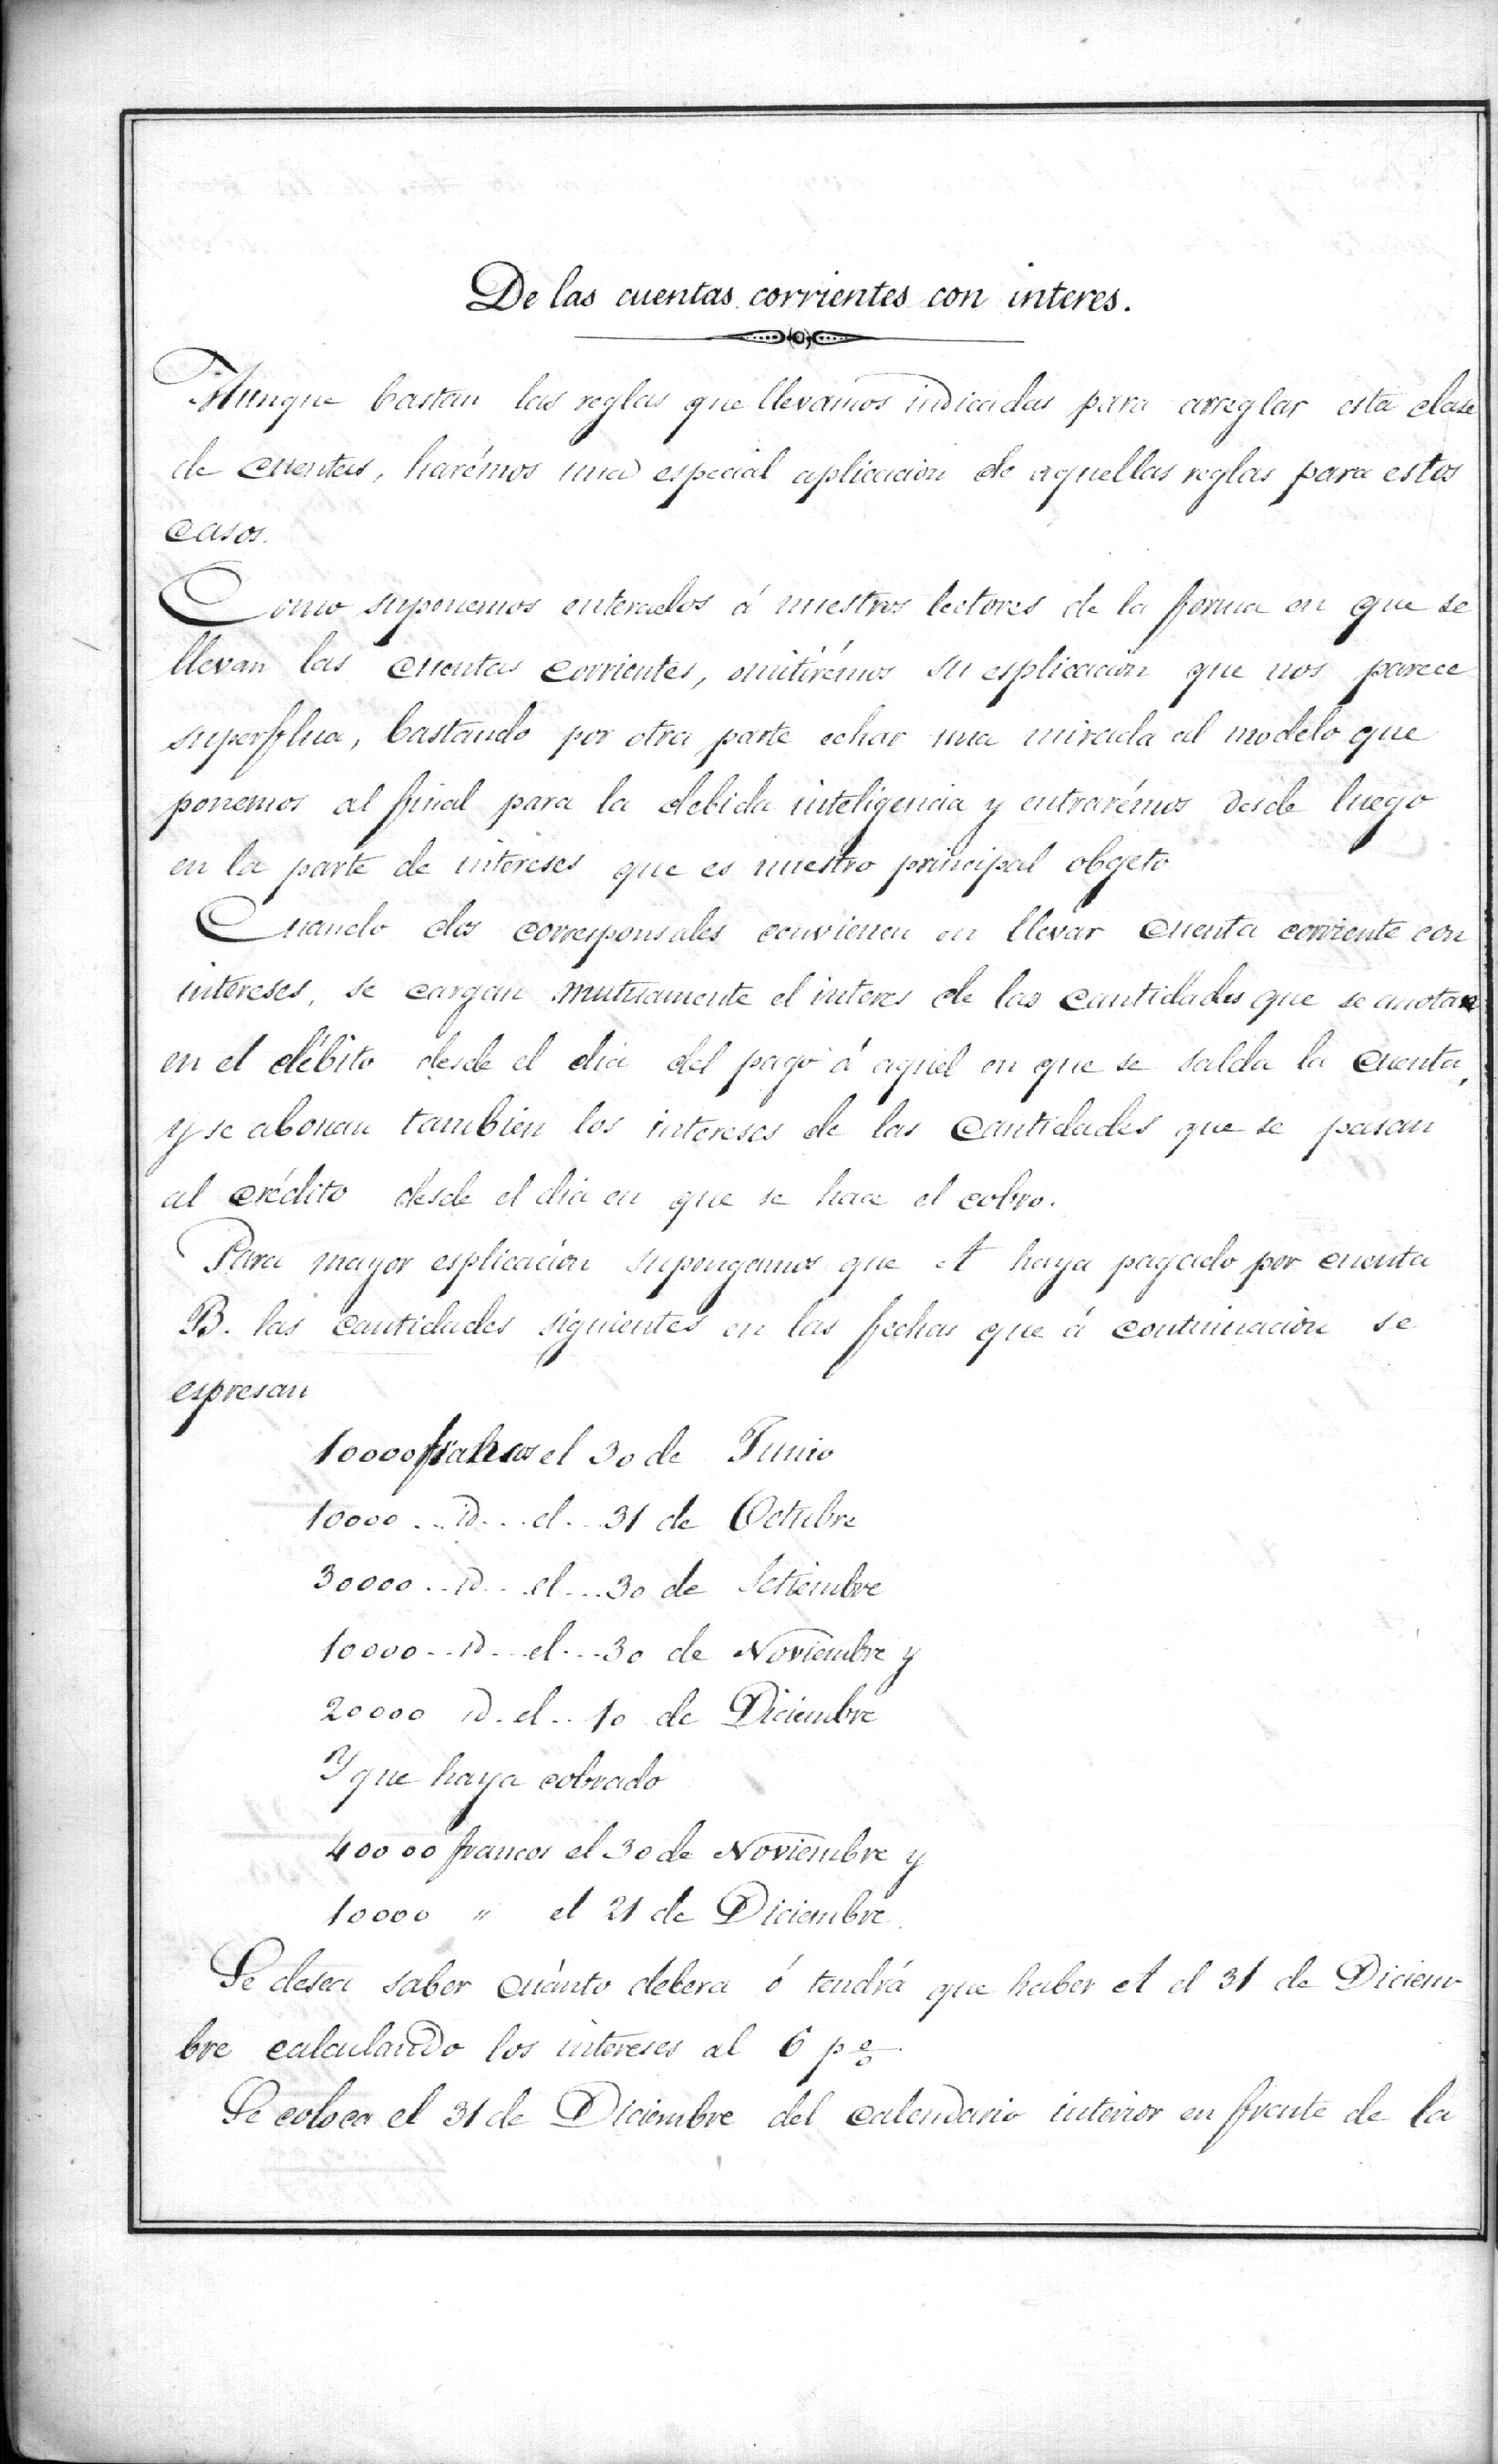 De las cuentas corrientes con interes.
Aunque bastan las reglas que llevamos indicadas para arreglar esta clase
de cuentas, harémos una especial aplicacion de aquellas reglas para estos
casos.
Como suponemos enterados á nuestros lectores de la forma en que se
llevan las cuentas corrientes, omitirémos su esplicacion que nos parece
superflua, bastando por otra parte echar una mirada al modelo que
ponemos al final para la debida inteligencia y entrarémos desde luego
en la parte de intereses que es nuestro principal objeto
Cuando dos corresponsales convienen en llevar cuenta corriente con
intereses, se cargan mutuamente el interes de las cantidades que se anotan
en el débito desde el dia del pago á aquel en que se salda la cuenta,
y se abonan tambien los intereses de las cantidades que se pasan
al crédito desde el dia en que se hace el cobro.
Para mayor esplicacion supongamos que A haya pagado por cuenta
B. las cantidades siguientes en las fechas que á continuacion se
espresan
10000 francos el 30 de Junio
10000 .. id... el.. 31 de Octubre
30000 .. id... el... 30 de Setiembre
10000 .. id.. el... 30 de Noviembre y
20000 id. el.. 10 de Diciembre
Y que haya cobrado
40000 francos el 30 de Noviembre y
10000 " el 21 de Diciembre.
Se desea saber cuánto debera ó tendrá que haber A el 31 de Diciem-
bre calculando los intereses al 6 p%
Se coloca el 31 de Diciembre del calendario interior en frente de la